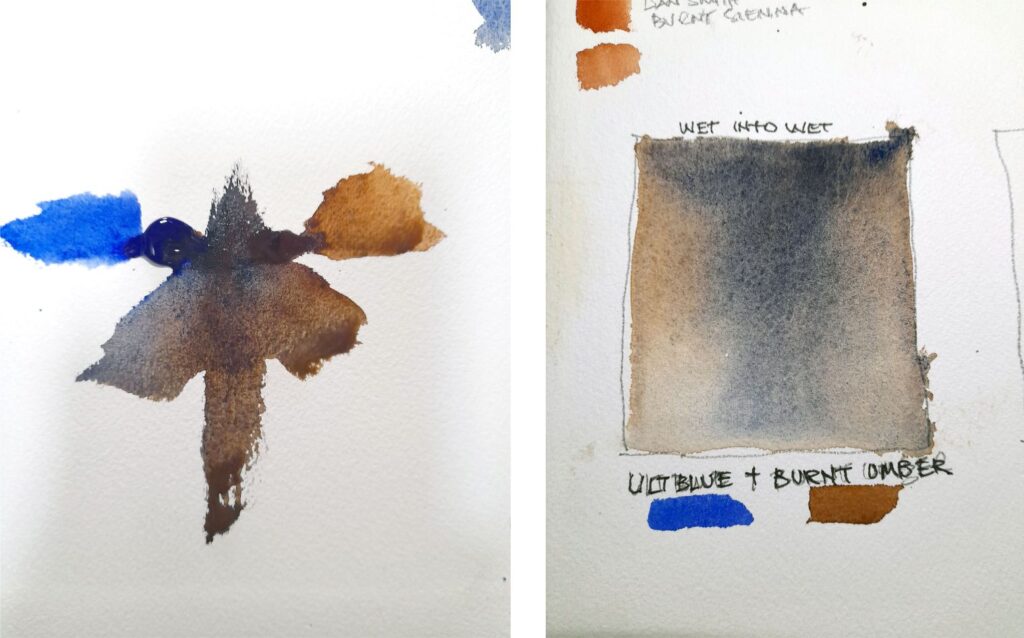 BURNT SIENNA
WET INTO WET
ULT BLUE + BURNT OMBER